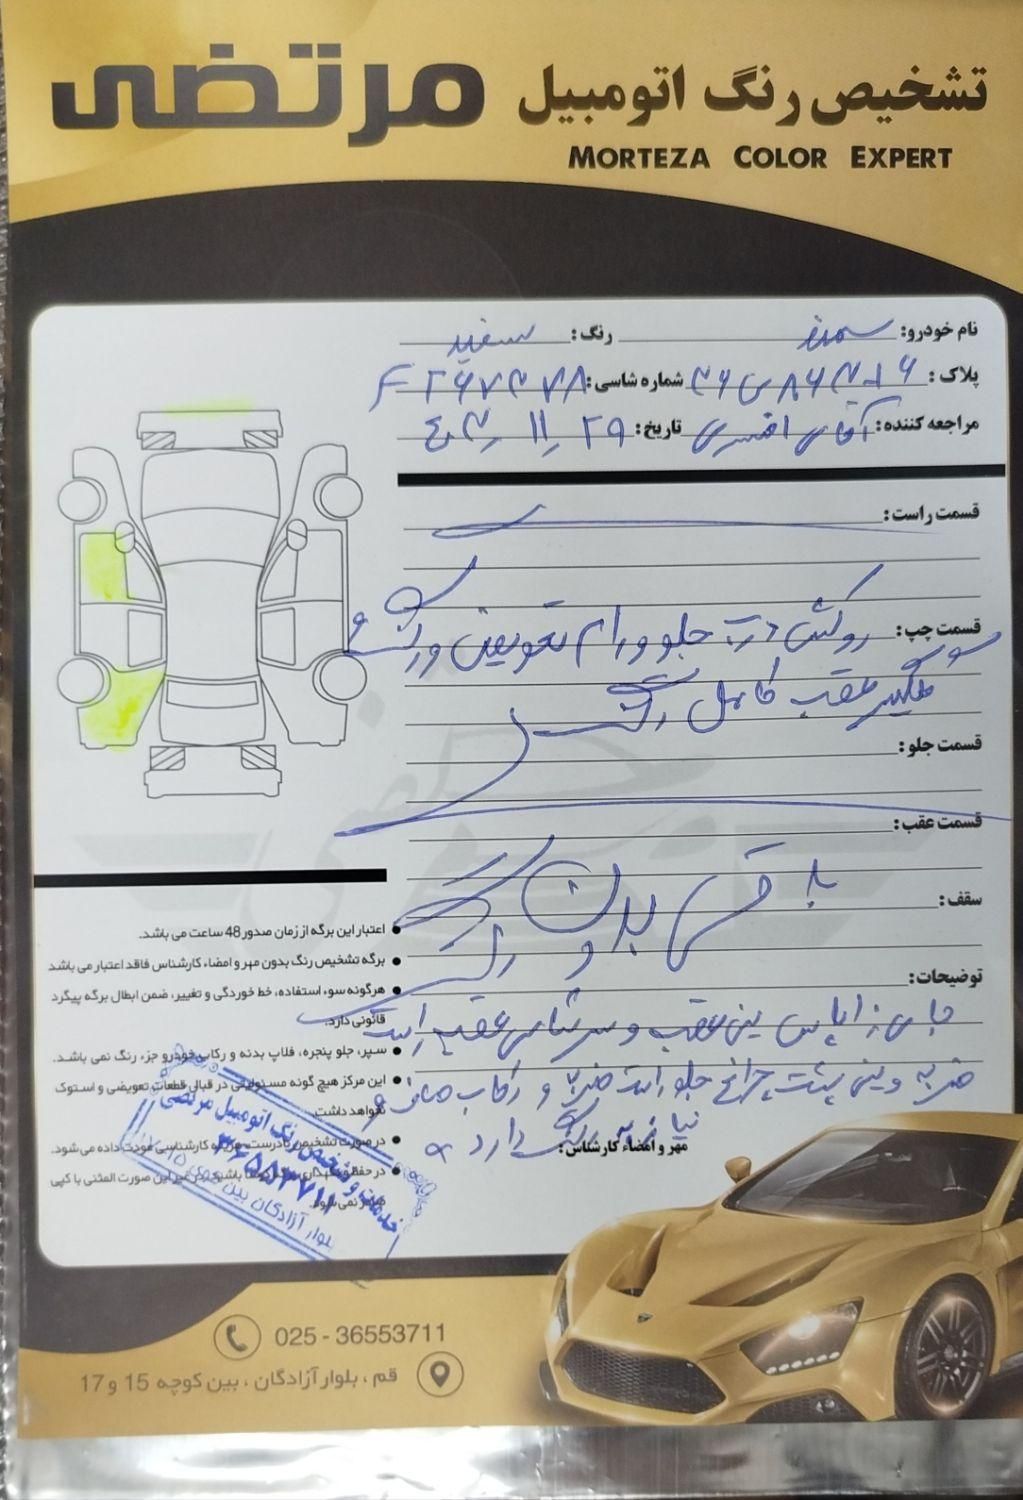 تشخیص رنگ اتومبیل مرتضی
MORTEZA COLOR EXPERT
نام خودرو: سمند رنگ: سفید
پلاک: شماره شاسی: F۲۶۷۳۴۷۸
مراجعه کننده: آقای تاریخ: ۲۹ ۱۱
قسمت راست:
قسمت چپ: روکش درب جلو و رام تعویض و رنگ و
گلگیر عقب کامل رنگ
قسمت جلو:
قسمت عقب:
باقی بدون رنگ
سقف:
توضیحات:
جای زاپاس سینی عقب و سرشاسی عقب راست
ضربه و سینی پشت چراغ جلو راست ضربه و رکاب
نیاز به رنگ دارد
مهر و امضاء کارشناس:
اعتبار این برگه از زمان صدور 48 ساعت می باشد.
برگه تشخیص رنگ بدون مهر و امضاء کارشناس فاقد اعتبار می باشد
هرگونه سوء استفاده، خط خوردگی و تغییر، ضمن ابطال برگه پیگرد
قانونی دارد.
سپر، جلو پنجره، فلاپ بدنه و رکاب خودرو جزء رنگ نمی باشد.
این مرکز هیچ گونه مسئولیتی در قبال قطعات تعویضی و استوک
نخواهد داشت.
در صورت تشخیص نادرست، هزینه کارشناسی عودت داده می شود.
در حفظ و نگهداری برگه کوشا باشید، در غیر این صورت المثنی یا کپی
صادر نمی شود.
خدمات و تشخیص رنگ اتومبیل مرتضی
۳۶۵۵۳۷۱۱
بلوار آزادگان بین کوچه ۱۵ و ۱۷
025 - 36553711
قم ، بلوار آزادگان ، بین کوچه 15 و 17